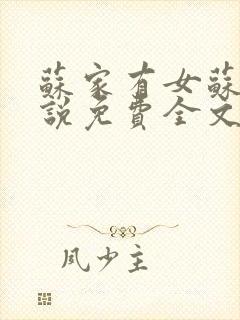 蘇家有女蘇
說免費全文
風少主